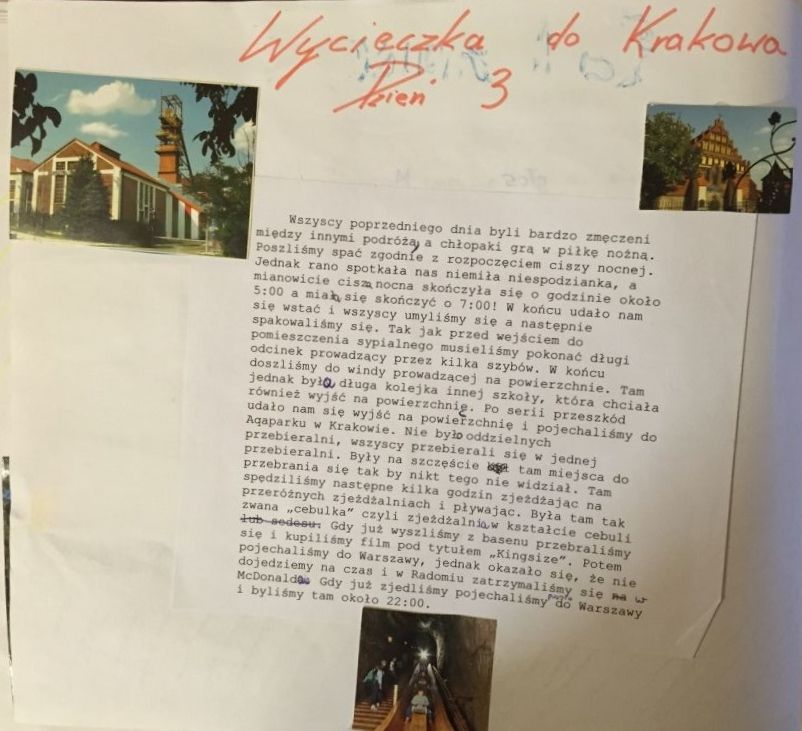 Wycieczka do Krakowa
Dzień 3
Wszyscy poprzedniego dnia byli bardzo zmęczeni
między innymi podróżą, a chłopaki grą w piłkę nożną.
Poszliśmy spać zgodnie z rozpoczęciem ciszy nocnej.
Jednak rano spotkała nas niemiła niespodzianka, a
mianowicie cisza nocna skończyła się o godzinie około
5:00 a miała się skończyć o 7:00! W końcu udało nam
się wstać i wszyscy umyliśmy się a następnie
spakowaliśmy się. Tak jak przed wejściem do
pomieszczenia sypialnego musieliśmy pokonać długi
odcinek prowadzący przez kilka szybów. W końcu
doszliśmy do windy prowadzącej na powierzchnie. Tam
jednak była długa kolejka innej szkoły, która chciała
również wyjść na powierzchnię. Po serii przeszkód
udało nam się wyjść na powierzchnię i pojechaliśmy do
Aqaparku w Krakowie. Nie było oddzielnych
przebieralni, wszyscy przebierali się w jednej
przebieralni. Były na szczęście tam miejsca do
przebrania się tak by nikt tego nie widział. Tam
spędziliśmy następne kilka godzin zjeżdżając na
przeróżnych zjeżdżalniach i pływając. Była tam tak
zwana „cebulka” czyli zjeżdżalnia w kształcie cebuli
lub sedesu. Gdy już wyszliśmy z basenu przebraliśmy
się i kupiliśmy film pod tytułem „Kingsize”. Potem
pojechaliśmy do Warszawy, jednak okazało się, że nie
dojedziemy na czas i w Radomiu zatrzymaliśmy się na w
McDonalds. Gdy już zjedliśmy pojechaliśmy do Warszawy
i byliśmy tam około 22:00.